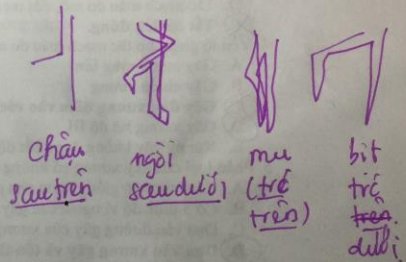 chậu
sau trên
ngồi
sau dưới
mu
(trć
trên)
bịt
trć
dưới